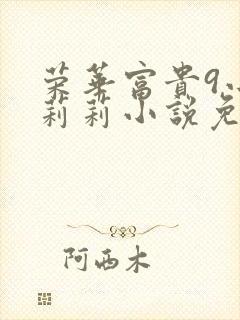 荣华富貴9.
莉莉小説免
阿西木